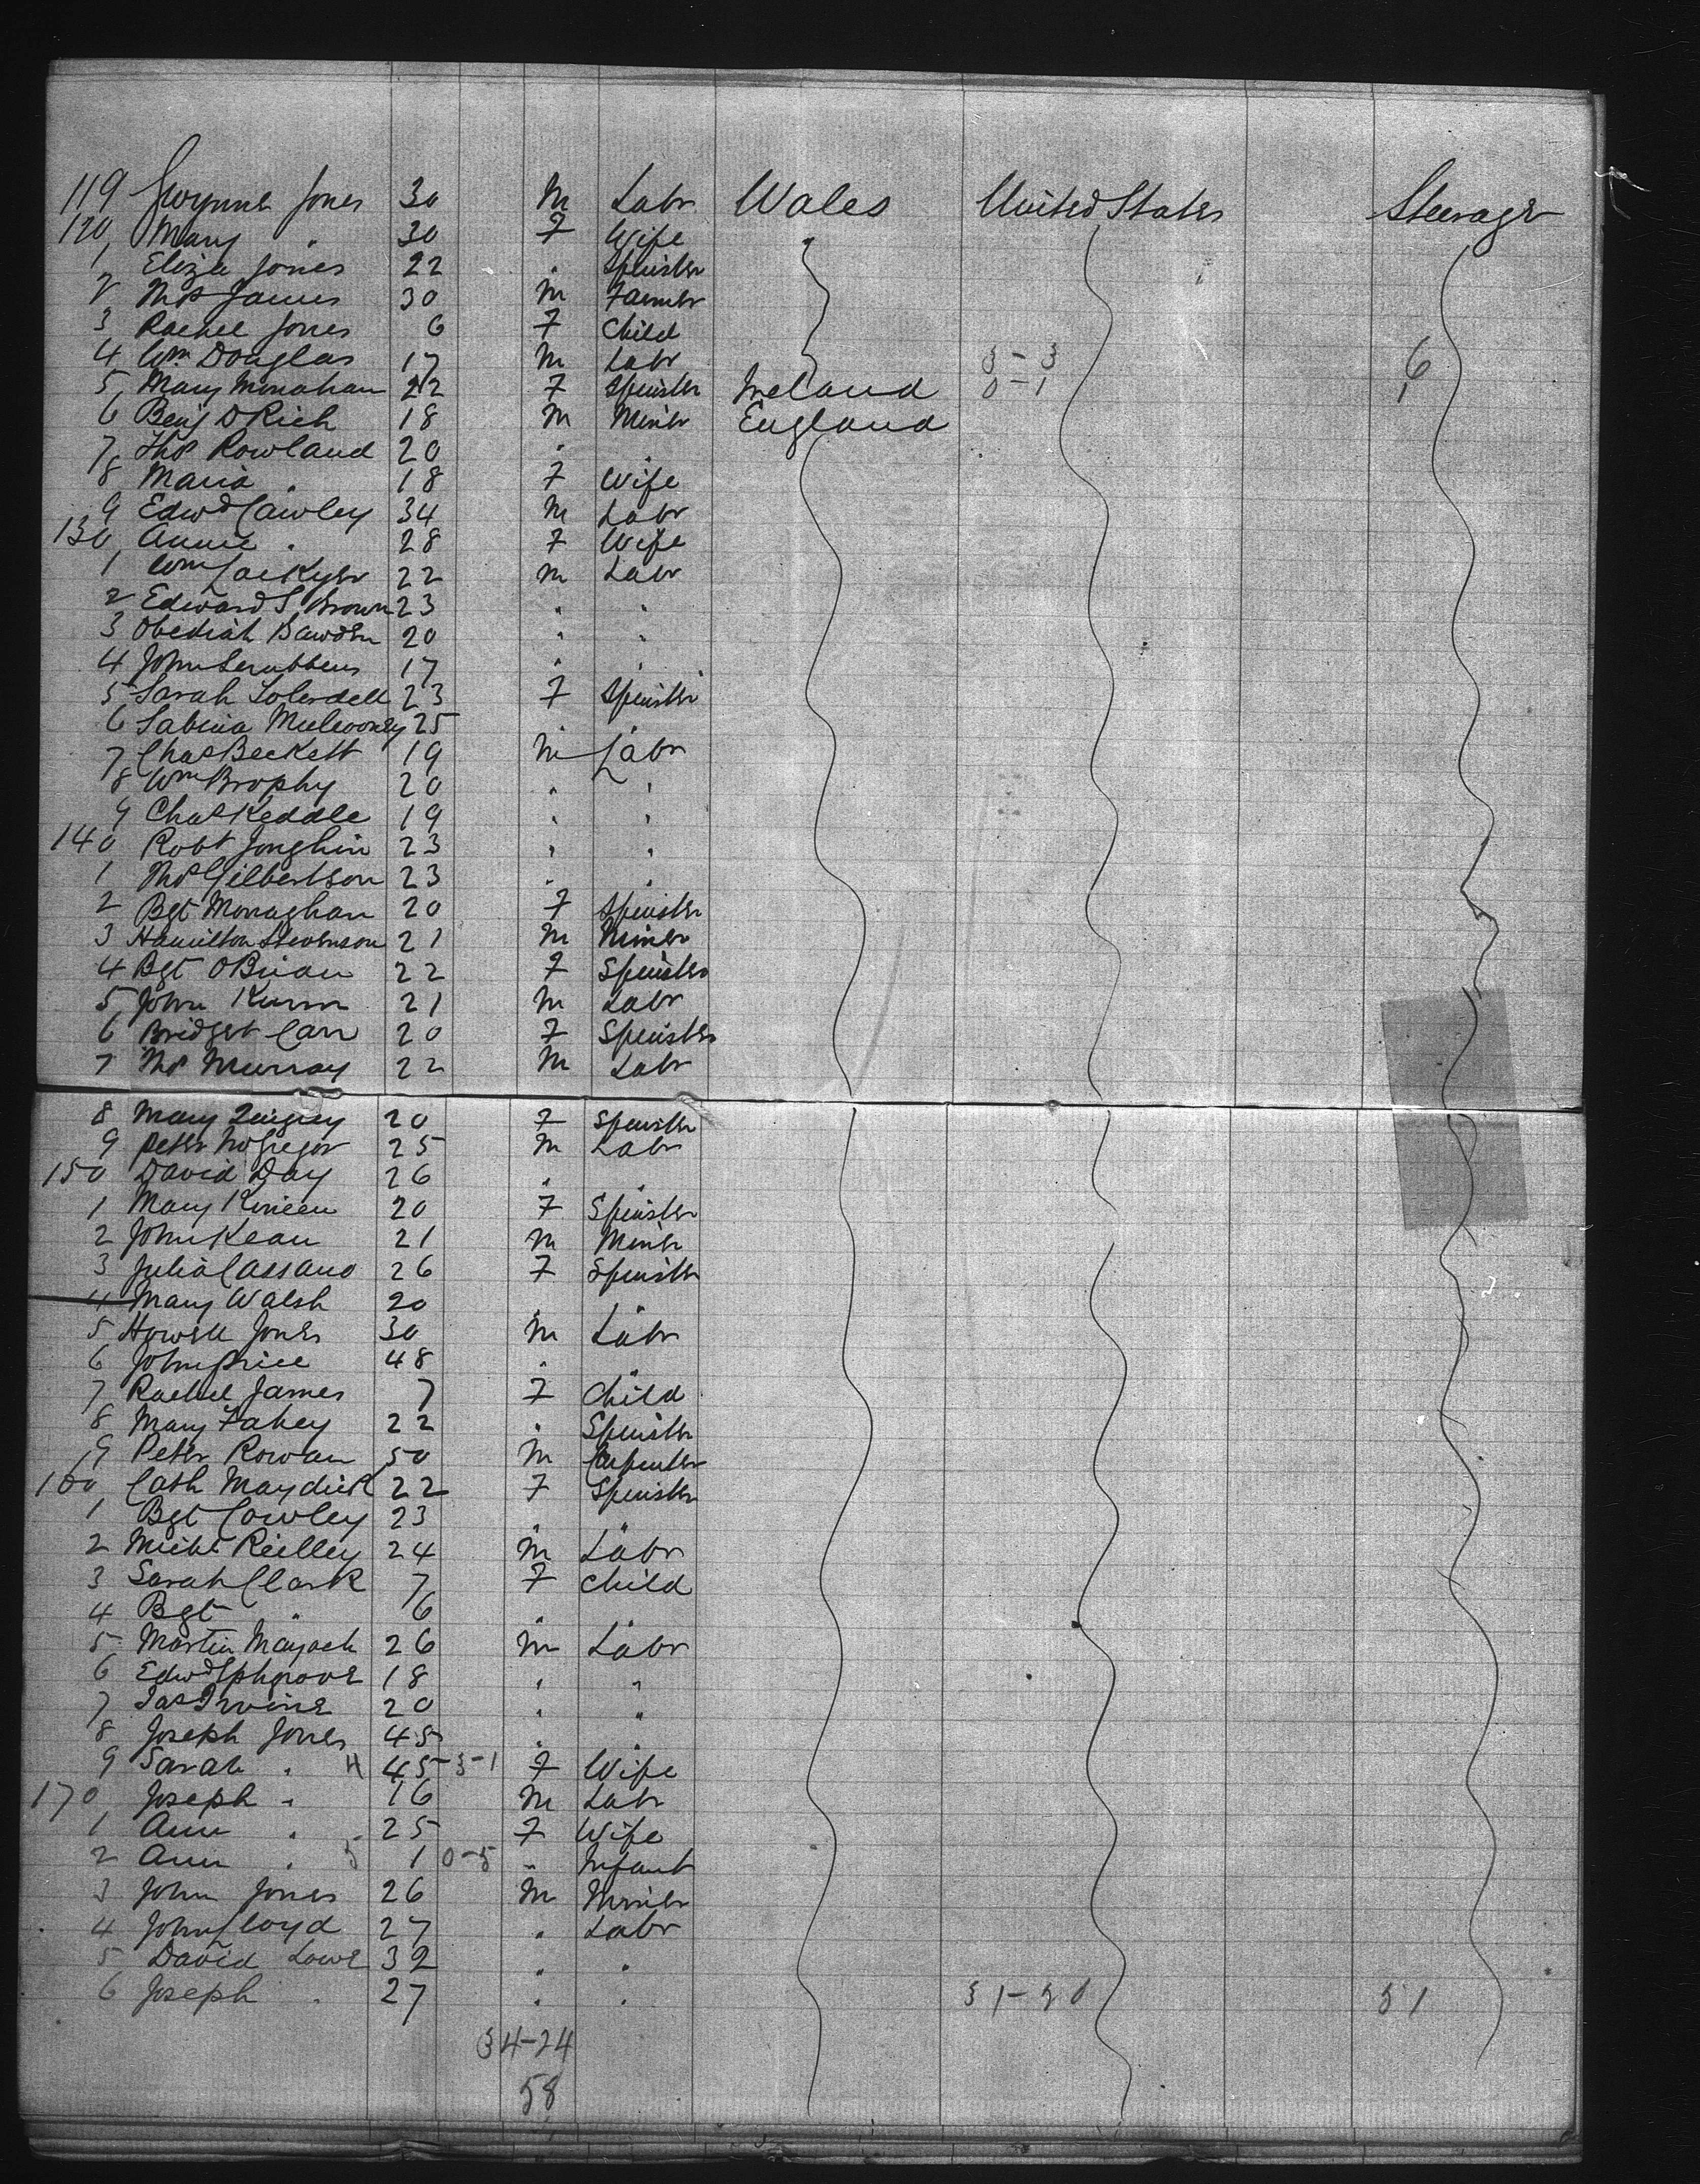 119 Gwynne Jones 30 M Labr Wales United States Steerage
120 Mary " 30 F Wife
1 Eliza Jones 22 " Spinster
2 Thos James 30 M Farmer
3 Rachel Jones 6 F Child
4 Wm Douglas 17 M Labr 3-3 6
5 Mary Monahan 22 F Spinster Ireland 0-1 1
6 Benj D Rich 18 M Miner England
7 Thos Rowland 20 " "
8 Maria " 18 F Wife
9 Edwd Cawley 34 M Labr
130 Annie " 28 F Wife
1 Wm Lackyer 22 M Labr
2 Edward S Brown 23 " "
3 Obediah Bawden 20 " "
4 John Scrubbens 17 " "
5 Sarah 23 F Spinster
6 Sabina Mulrooney 25 " "
7 Chas Beckett 19 M Labr
8 Wm Brophy 20 " "
9 Chas Keddle 19 " "
140 Robt Jonghin 23 " "
1 Thos Gilbertson 23 " "
2 Bgt Monaghan 20 F Spinster
3 Hamilton Stevenson 21 M Miner
4 Bgt OBrian 22 F Spinster
5 John 21 M Labr
6 Bridget Carr 20 F Spinster
7 Thos Murray 22 M Labr
8 Mary 20 F Spinster
9 Peter McGregor 25 M Labr
150 David Day 26 " "
1 Mary Kineen 20 F Spinster
2 John Kean 21 M Miner
3 Julia Cassano 26 F Spinster
4 Mary Walsh 20 " "
5 Howell Jones 30 M Labr
6 John Price 48 " "
7 Rachel James 7 F Child
8 Mary Fahey 22 " Spinster
9 Peter Rowan 50 M Carpenter
160 Cath Maydick 22 F Spinster
1 Bgt Cowley 23 " "
2 Michl Reilley 24 M Labr
3 Sarah Clark 7 F Child
4 Bgt " 6 " "
5 Martin Mayock 26 M Labr
6 Edwd Uphgrove 18 " "
7 Jas Irvine 20 " "
8 Joseph Jones 45 " "
9 Sarah " 45 3-1 F Wife
170 Joseph " 16 M Labr
1 Ann " 25 F Wife
2 Ann " 5 1 0-5 " Infant
3 John Jones 26 M Miner
4 John Lloyd 27 " Labr
5 David Lowe 32 " "
6 Joseph " 27 " " 31-20 51
34-24
58